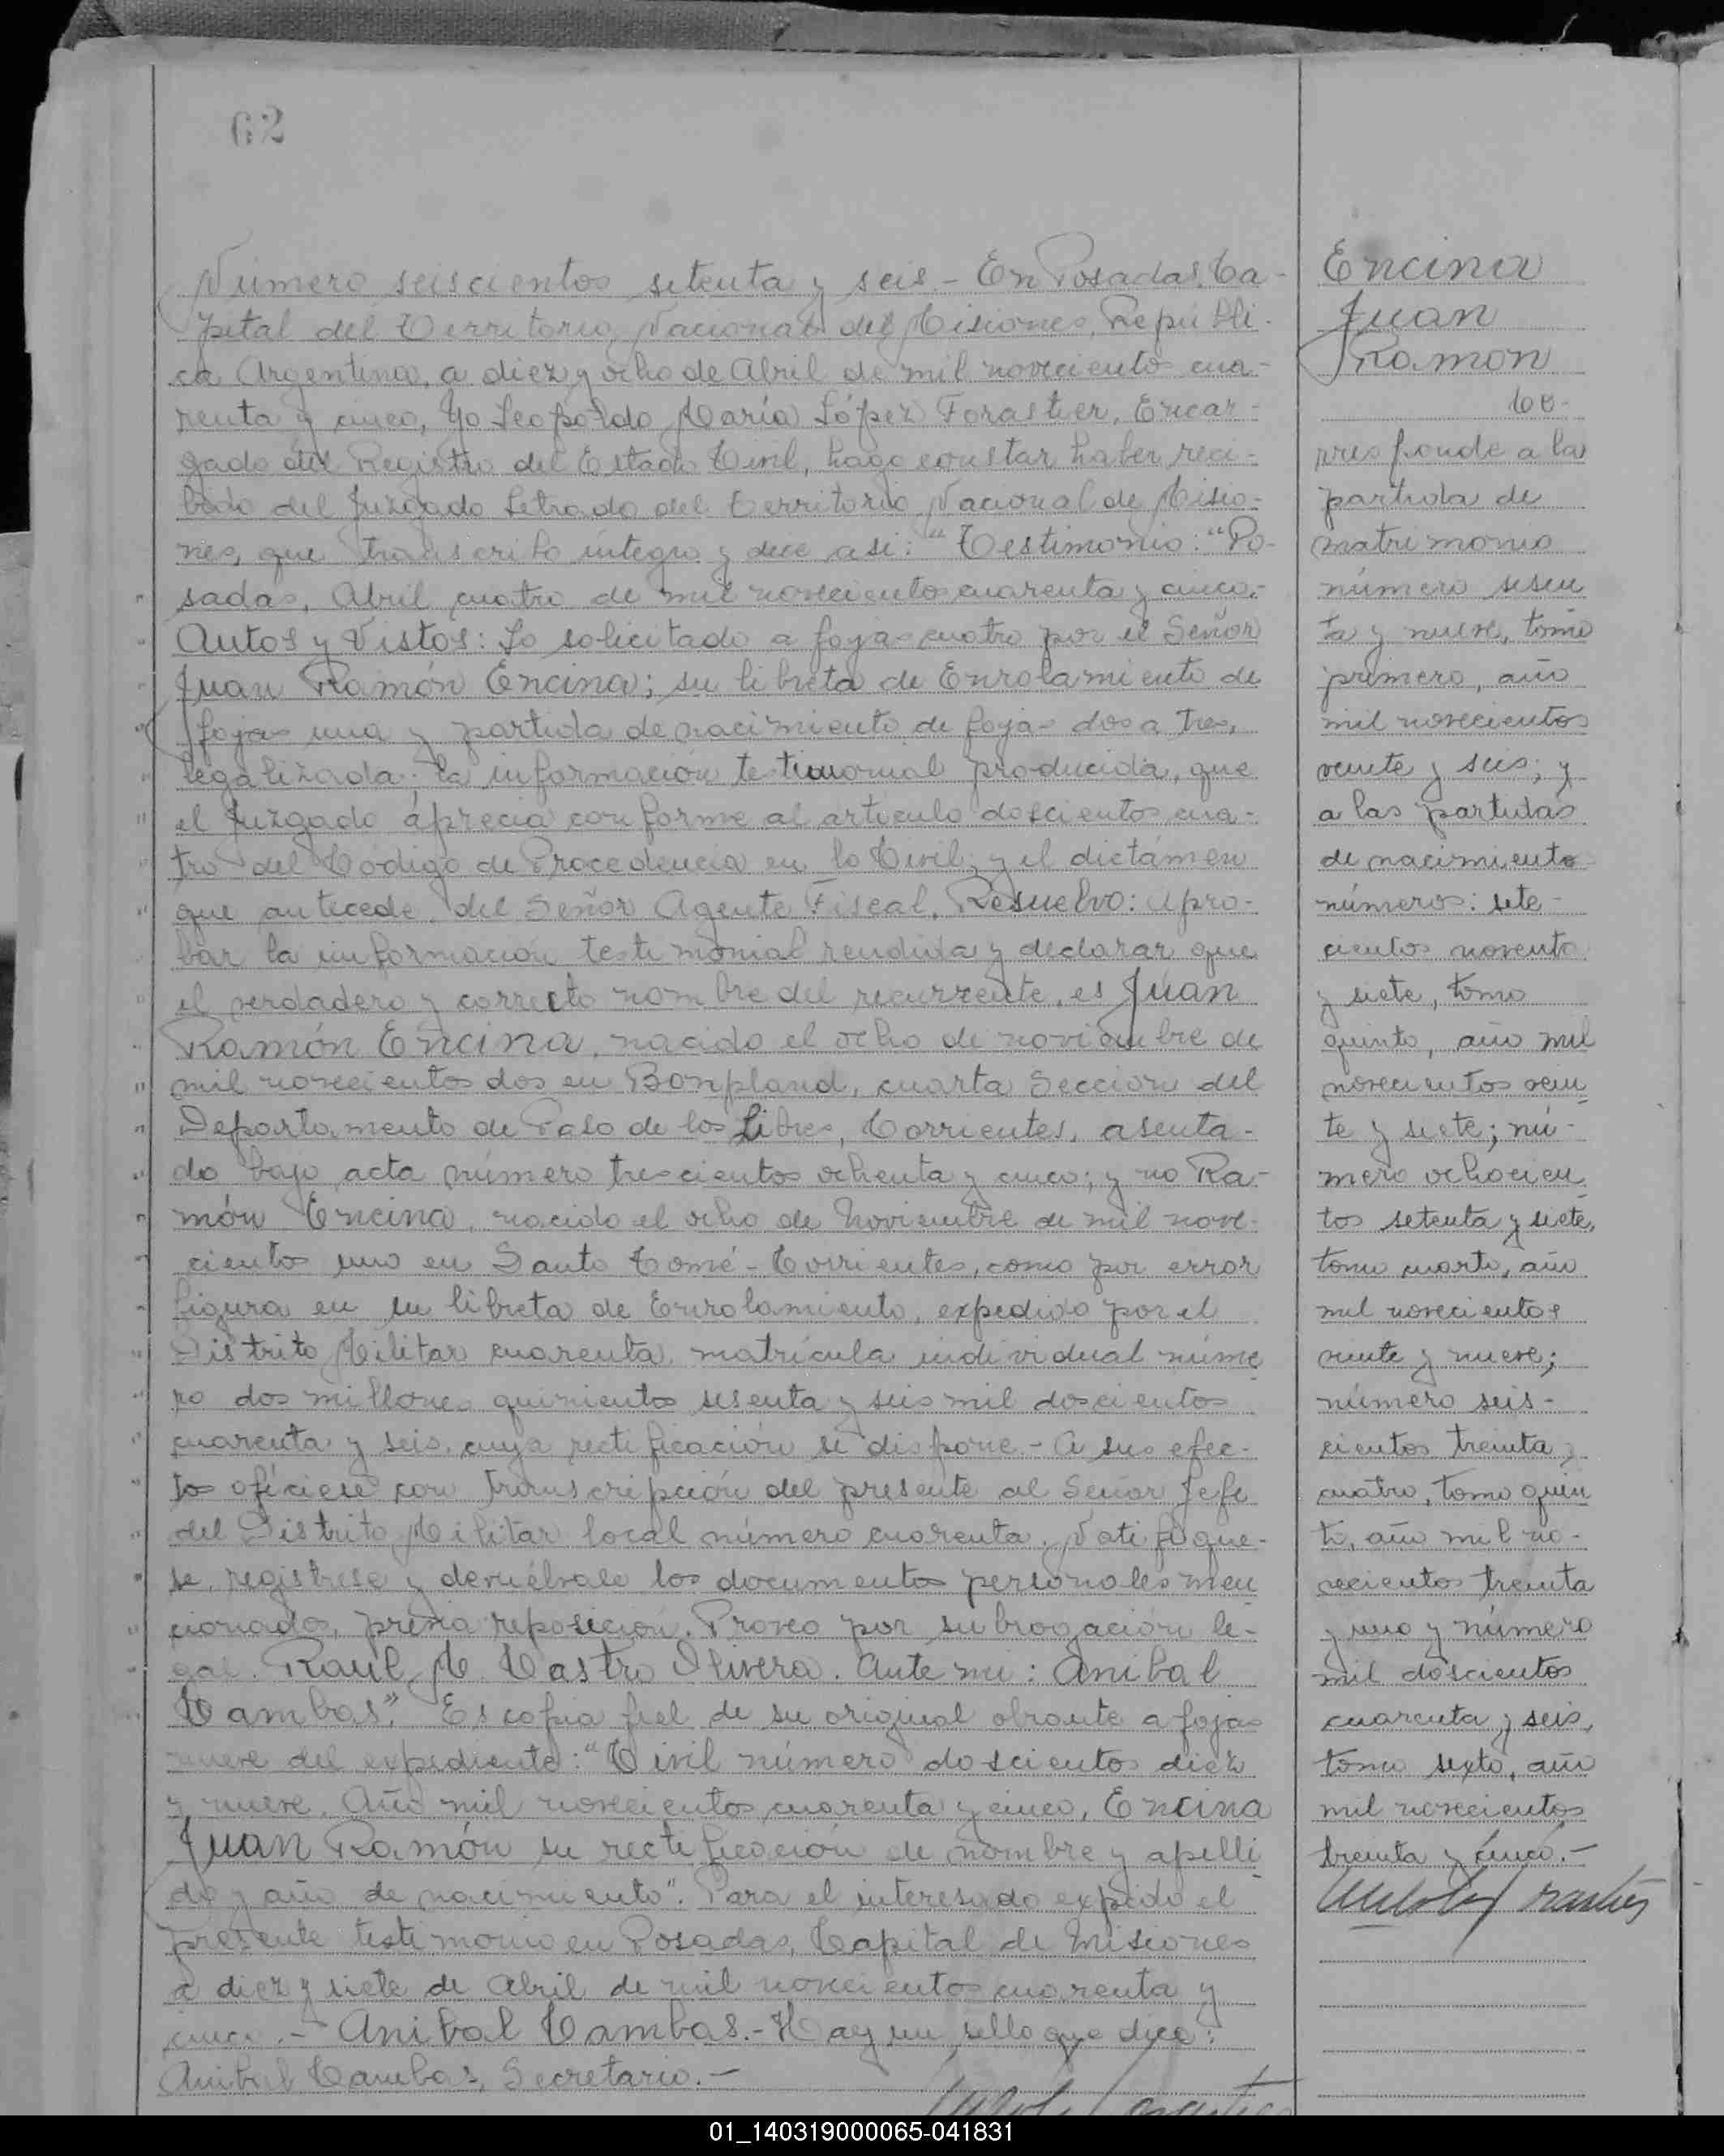 62
Número seiscientos setenta y seis.- En Posadas, Ca-
pital del Territorio Nacional de Misiones, Repúbli-
ca Argentina, a diez y ocho de Abril de mil novecientos cua-
renta y cinco, Yo Leopoldo María López Forastier, Encar-
gado del Registro del Estado Civil, hago constar haber reci-
bido del Juzgado Letrado del Territorio Nacional de Misio-
nes, que transcribo íntegro y dice así: "Testimonio: "Po-
sadas, Abril cuatro de mil novecientos cuarenta y cinco.-
Autos y Vistos: Lo solicitado a fojas cuatro por el Señor
Juan Ramón Encina; su libreta de Enrolamiento de
fojas una y partida de nacimiento de fojas dos a tres,
legalizada; la información testimonial producida, que
el Juzgado aprecia conforme al artículo doscientos cua-
tro del Código de Procedencia en lo Civil; y el dictámen
que antecede del Señor Agente Fiscal, Resuelvo: apro-
bar la información testimonial rendida y declarar que
el verdadero y correcto nombre del recurrente, es Juan
Ramón Encina, nacido el ocho de noviembre de
mil novecientos dos en Bonpland, cuarta Sección del
Departamento de Paso de los Libres, Corrientes, asenta-
do bajo acta número trescientos ochenta y cinco; y no Ra-
món Encina, nacido el ocho de Noviembre de mil nove-
cientos uno en Santo Tomé - Corrientes, como por error
figura en su libreta de Enrolamiento, expedido por el
Distrito Militar cuarenta, matrícula individual núme
ro dos millones quinientos sesenta y seis mil doscientos
cuarenta y seis, cuya rectificación se dispone.- A sus efec-
tos ofíciese con transcripción del presente al Señor Jefe
del Distrito Militar local número cuarenta. Notifíque-
se, regístrese y devuélvase los documentos personales men
cionados, previa reposición. Proveo por subrogación le-
gal. Raúl M. Castro Olivera. Ante mi: Anibal
Cambas". Es copia fiel de su original obrante a fojas
nueve del expediente: "Civil número doscientos diez
y nueve. Año mil novecientos cuarenta y cinco, Encina
Juan Ramón su rectificación de nombre y apelli
do y año de nacimiento". Para el interesado expido el
presente testimonio en Posadas, Capital de Misiones
a diez y siete de Abril de mil novecientos cuarenta y
cinco.- Anibal Cambas.- Hay un sello que dice:
Anibal Cambas, Secretario.-
Encina
Juan
Ramon
Co-
rresponde a la
partida de
matrimonio
número sesen
ta y nueve, tomo
primero, año
mil novecientos
veinte y seis; y
a las partidas
de nacimiento
números: sete-
cientos noventa
y siete, tomo
quinto, año mil
novecientos vein
te y siete; nú-
mero ochocien
tos setenta y siete,
tomo cuarto, año
mil novecientos
veinte y nueve;
número seis-
cientos treinta y
cuatro, tomo quin
to, año mil no-
vecientos treinta
y uno y número
mil doscientos
cuarenta y seis,
tomo sexto, año
mil novecientos
treinta y cinco.-
01_140319000065-041831